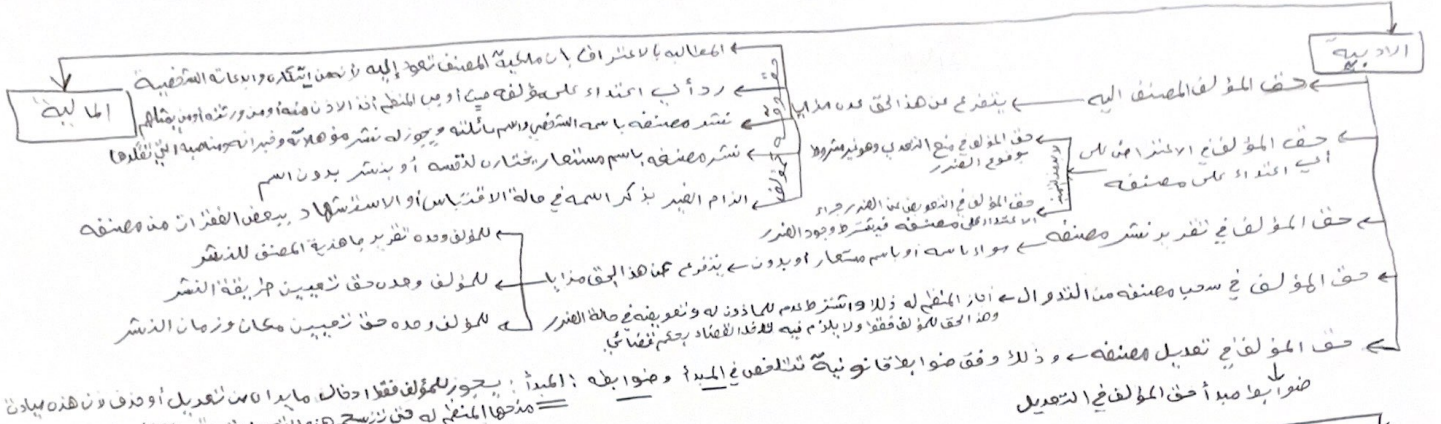 الادبية
المالية
حق المؤلف المصنف اليه ← يتفرع عن هذا الحق عده مزايا
حقوق المؤلف
المطالبه بالاعتراف بان ملكية المصنف تعود إليه لأنه من ابتكاره وابداعاته الشخصية
رد أي اعتداء على مؤلفه حيا أو من المنظم أخذ الاذن منه أو من ورثته أو من يمثلهم
نشر مصنفه باسمه الشخصي واسم عائلته ويجوز له نشر مؤهلاته وخبراته ومناصبه التي تقلدها
نشر مصنفه باسم مستعار يختاره لنفسه أو ينشر بدون اسم
الزام الغير بذكر اسمه في حالة الاقتباس أو الاستشهاد ببعض الفقرات من مصنفه
حق المؤلف في الاعتراض على
أي اعتداء على مصنفه
حق المؤلف في منع التعدي وهو غير مشروط
بوقوع الضرر
حق المؤلف في التعويض عن الضرر جراء
الاعتداء على مصنفه فيشترط وجود الضرر
حق المؤلف في تقرير نشر مصنفه ← سواء باسمه أو باسم مستعار أو بدون ← يتفرع عن هذا الحق مزايا
للمؤلف وحده تقرير جاهزية المصنف للنشر
للمؤلف وحده حق تعيين طريقة النشر
للمؤلف وحده حق تعيين مكان وزمان النشر
حق المؤلف في سحب مصنفه من التداول ← أجاز المنظم له ذلك واشترط للمأذون له وتعويضه في حالة الضرر
وهذا الحق للمؤلف فقط ولا يلزم فيه تدخل القضاء بحكم قضائي
حق المؤلف في تعديل مصنفه ← وذلك وفق ضوابط قانونية تتلخص في المبدأ وضوابطه : المبدأ : يجوز للمؤلف فقط ادخال مايراه من تعديل أو حذف
ضوابط مبدأ حق المؤلف في التعديل
منحها المنظم له